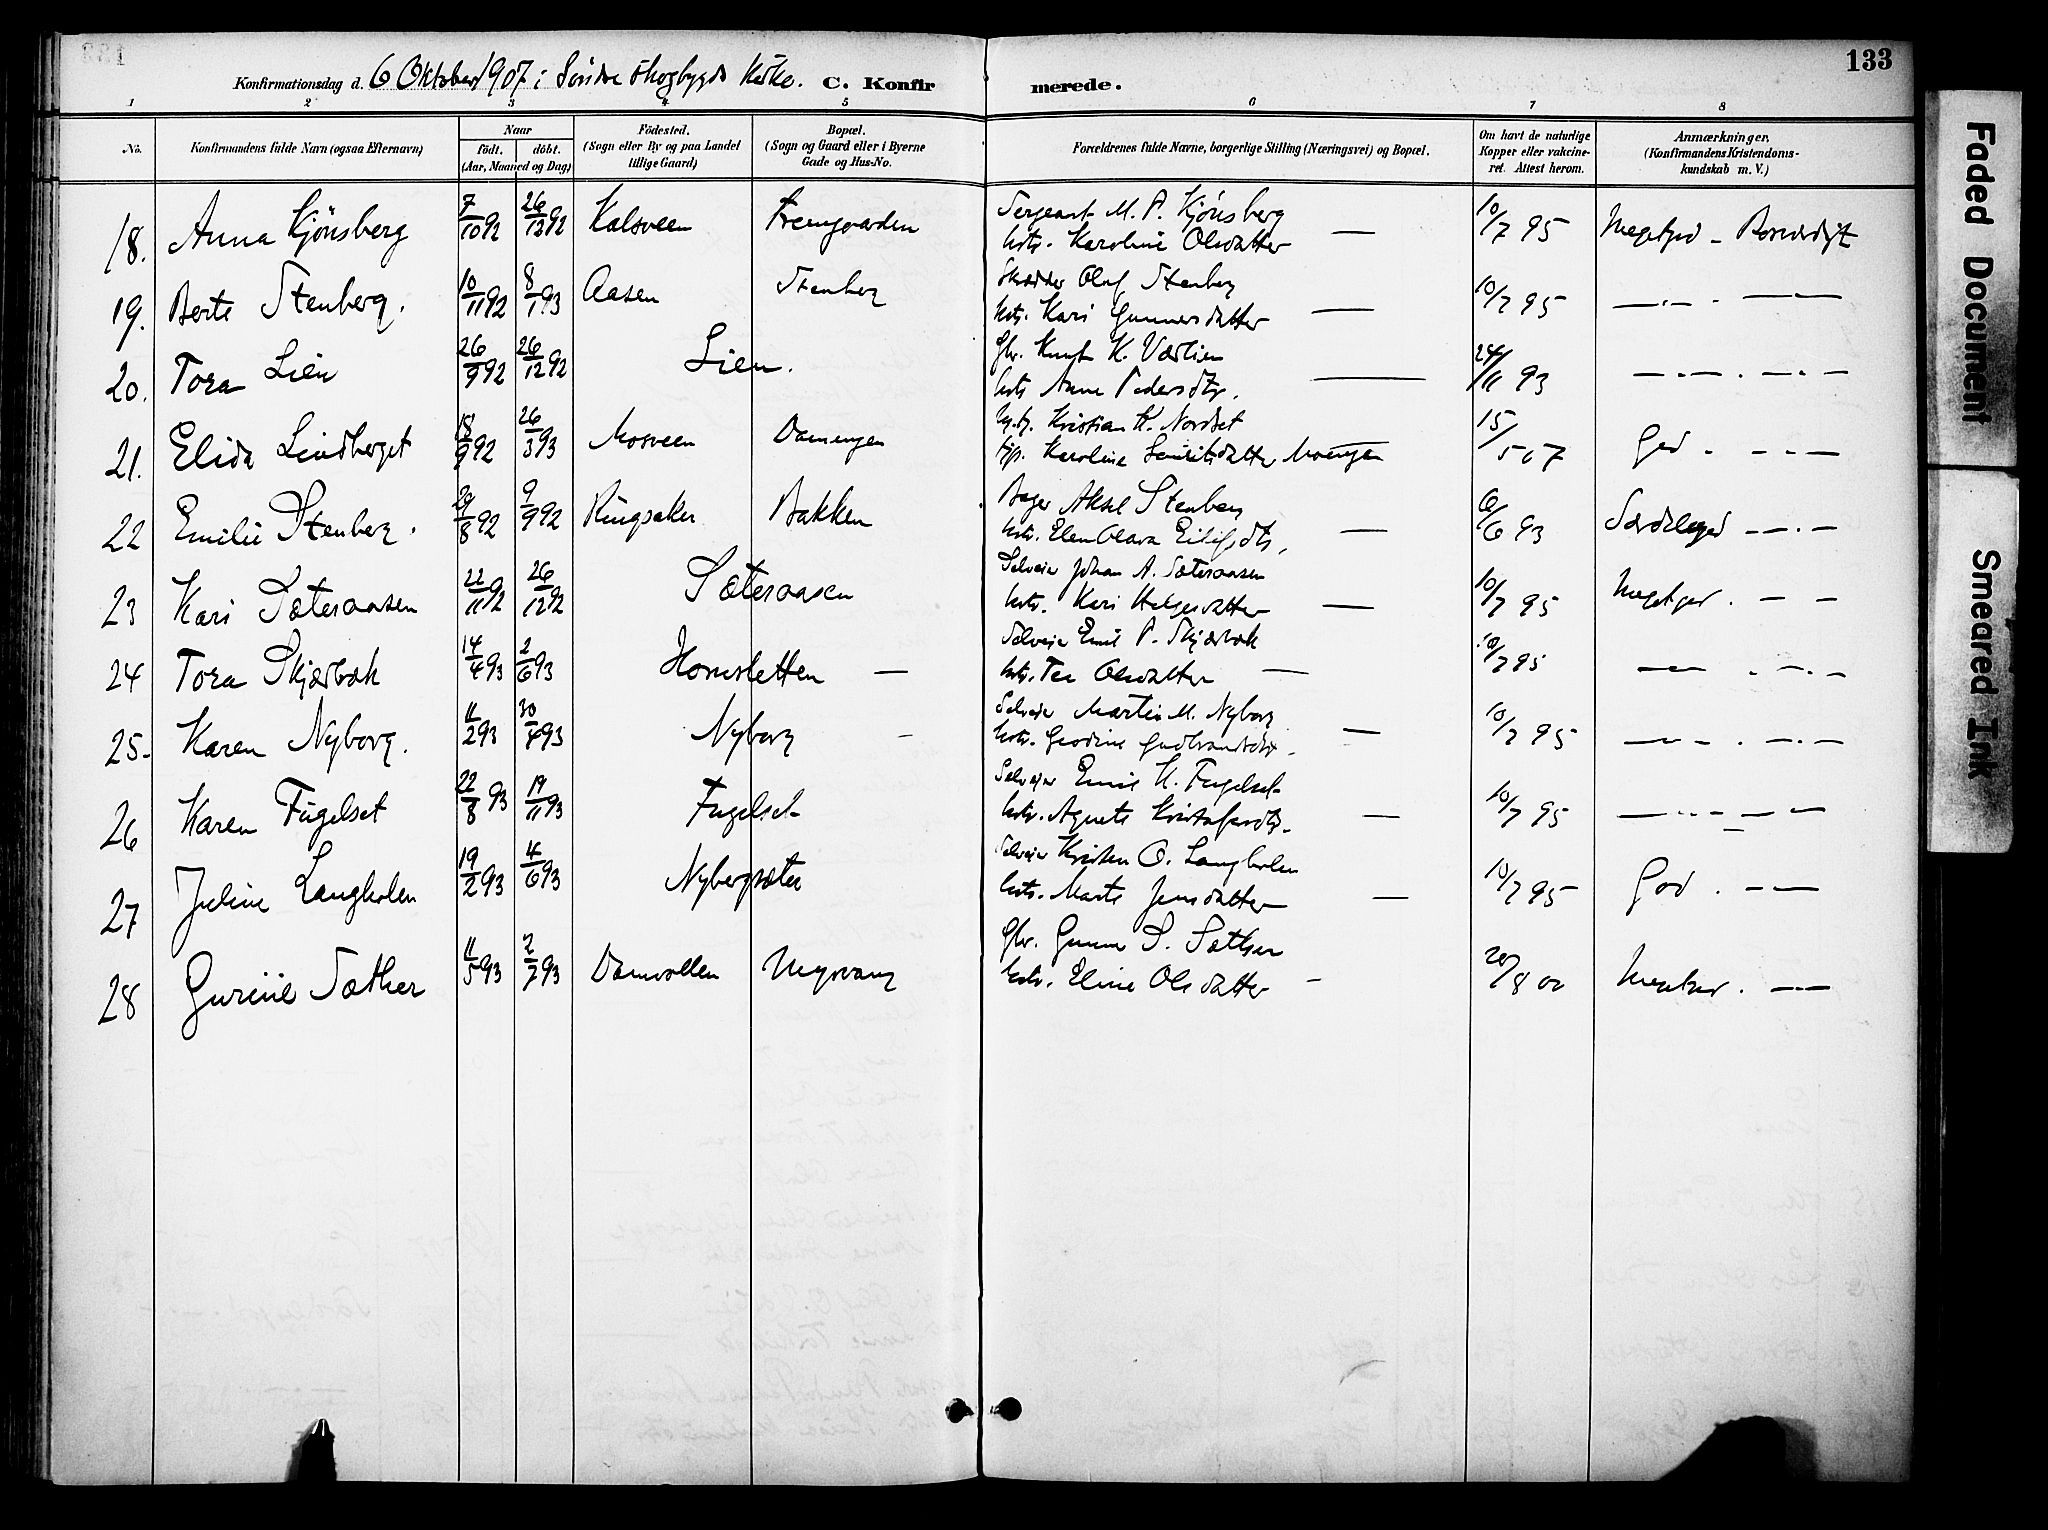 133
Konfirmationsdag d. 6 Oktober 1907 i Søndre Skogbygds Kirke. C. Konfirmerede.
1 2 3 4 5 6 7 8
No. Konfirmandens fulde Navn (ogsaa Efternavn) Naar födt. döbt. (Aar, Maaned og Dag) Födested. (Sogn eller By og paa Landet tillige Gaard) Bopæl. (Sogn og Gaard eller i Byerne Gade og Hus-No. Forældrenes fulde Navne, borgerlige Stilling (Næringsvei) og Bopæl. Om havt de naturlige Kopper eller vakcineret. Attest herom. Anmærkninger, (Konfirmandens Kristendomskundskab m. V.)
18. Anna Kjönsberg 7/10 92 26/12 92 Kalsveen Fremgaarden Sergeant M. P. Kjönsberg
Hstr. Karoline Olsdatter — 10/7 95 Megetgod -
19. Berte Stenberg. 10/11 92 8/1 93 Aasen Stenberg Skrædder Oluf Stenberg
Hstr. Kari Gunnersdatter — 10/7 95 — " — " —
20. Tora Lien 26/9 92 26/12 92 Lien. Gbr. Knut K. Værlien
Hstr Anne Pedersdtr. — 24/11 93 — " — . — " —
21. Elida Lindberget 18/9 92 26/3 93 Mosveen Damengen Kristian K. Nordset
Karoline Moengen 15/5 07 God - — " —
22 Emilie Stenberg. 29/8 92 9/9 92 Ringsaker Bakken Bager Aksel Stenberg
Hstr. Elen Olava — 6/6 93 Særdelesgod — " —
23 Kari Sæteraasen 22/11 92 26/12 92 Sæteraasen Selveier Johan A. Sæteraasen
Hstr. Kari Helgesdatter — 10/7 95 Megetgod. — " —
24 Tora Skjærbæk 14/4 93 2/6 93 Hornsletten — Selveier Emil P. Skjærbæk
Hstr. Tea Olsdatter — 10/7 95 — " — . — " —
25- Karen Nyborg. 11/2 93 30/4 93 Nyborg - Selveier Martin M. Nyborg
Hstr. Gudbrandsdtr. — 10/7 95 — " — . — " —
26 Karen Fugelset 22/8 93 19/11 93 Fugelset Selveier Emil K. Fugelset
Hstr. Agnete Kristofersdtr. — 10/7 95 — " — " —
27 Juline Langholen 19/2 93 4/6 93 Nybergsæter Selveier Kristen O. Langholen
Hstr. Marte Jensdatter — 10/7 95 God . — " —
28 Gurine Sæther 11/5 93 2/7 93 Damvollen Myrvang Gbr. Gunnar S. Sæther
Hstr. Eline Olsdatter - 20/8 00 Megetgod . — " —
Faded Document
Smeared Ink